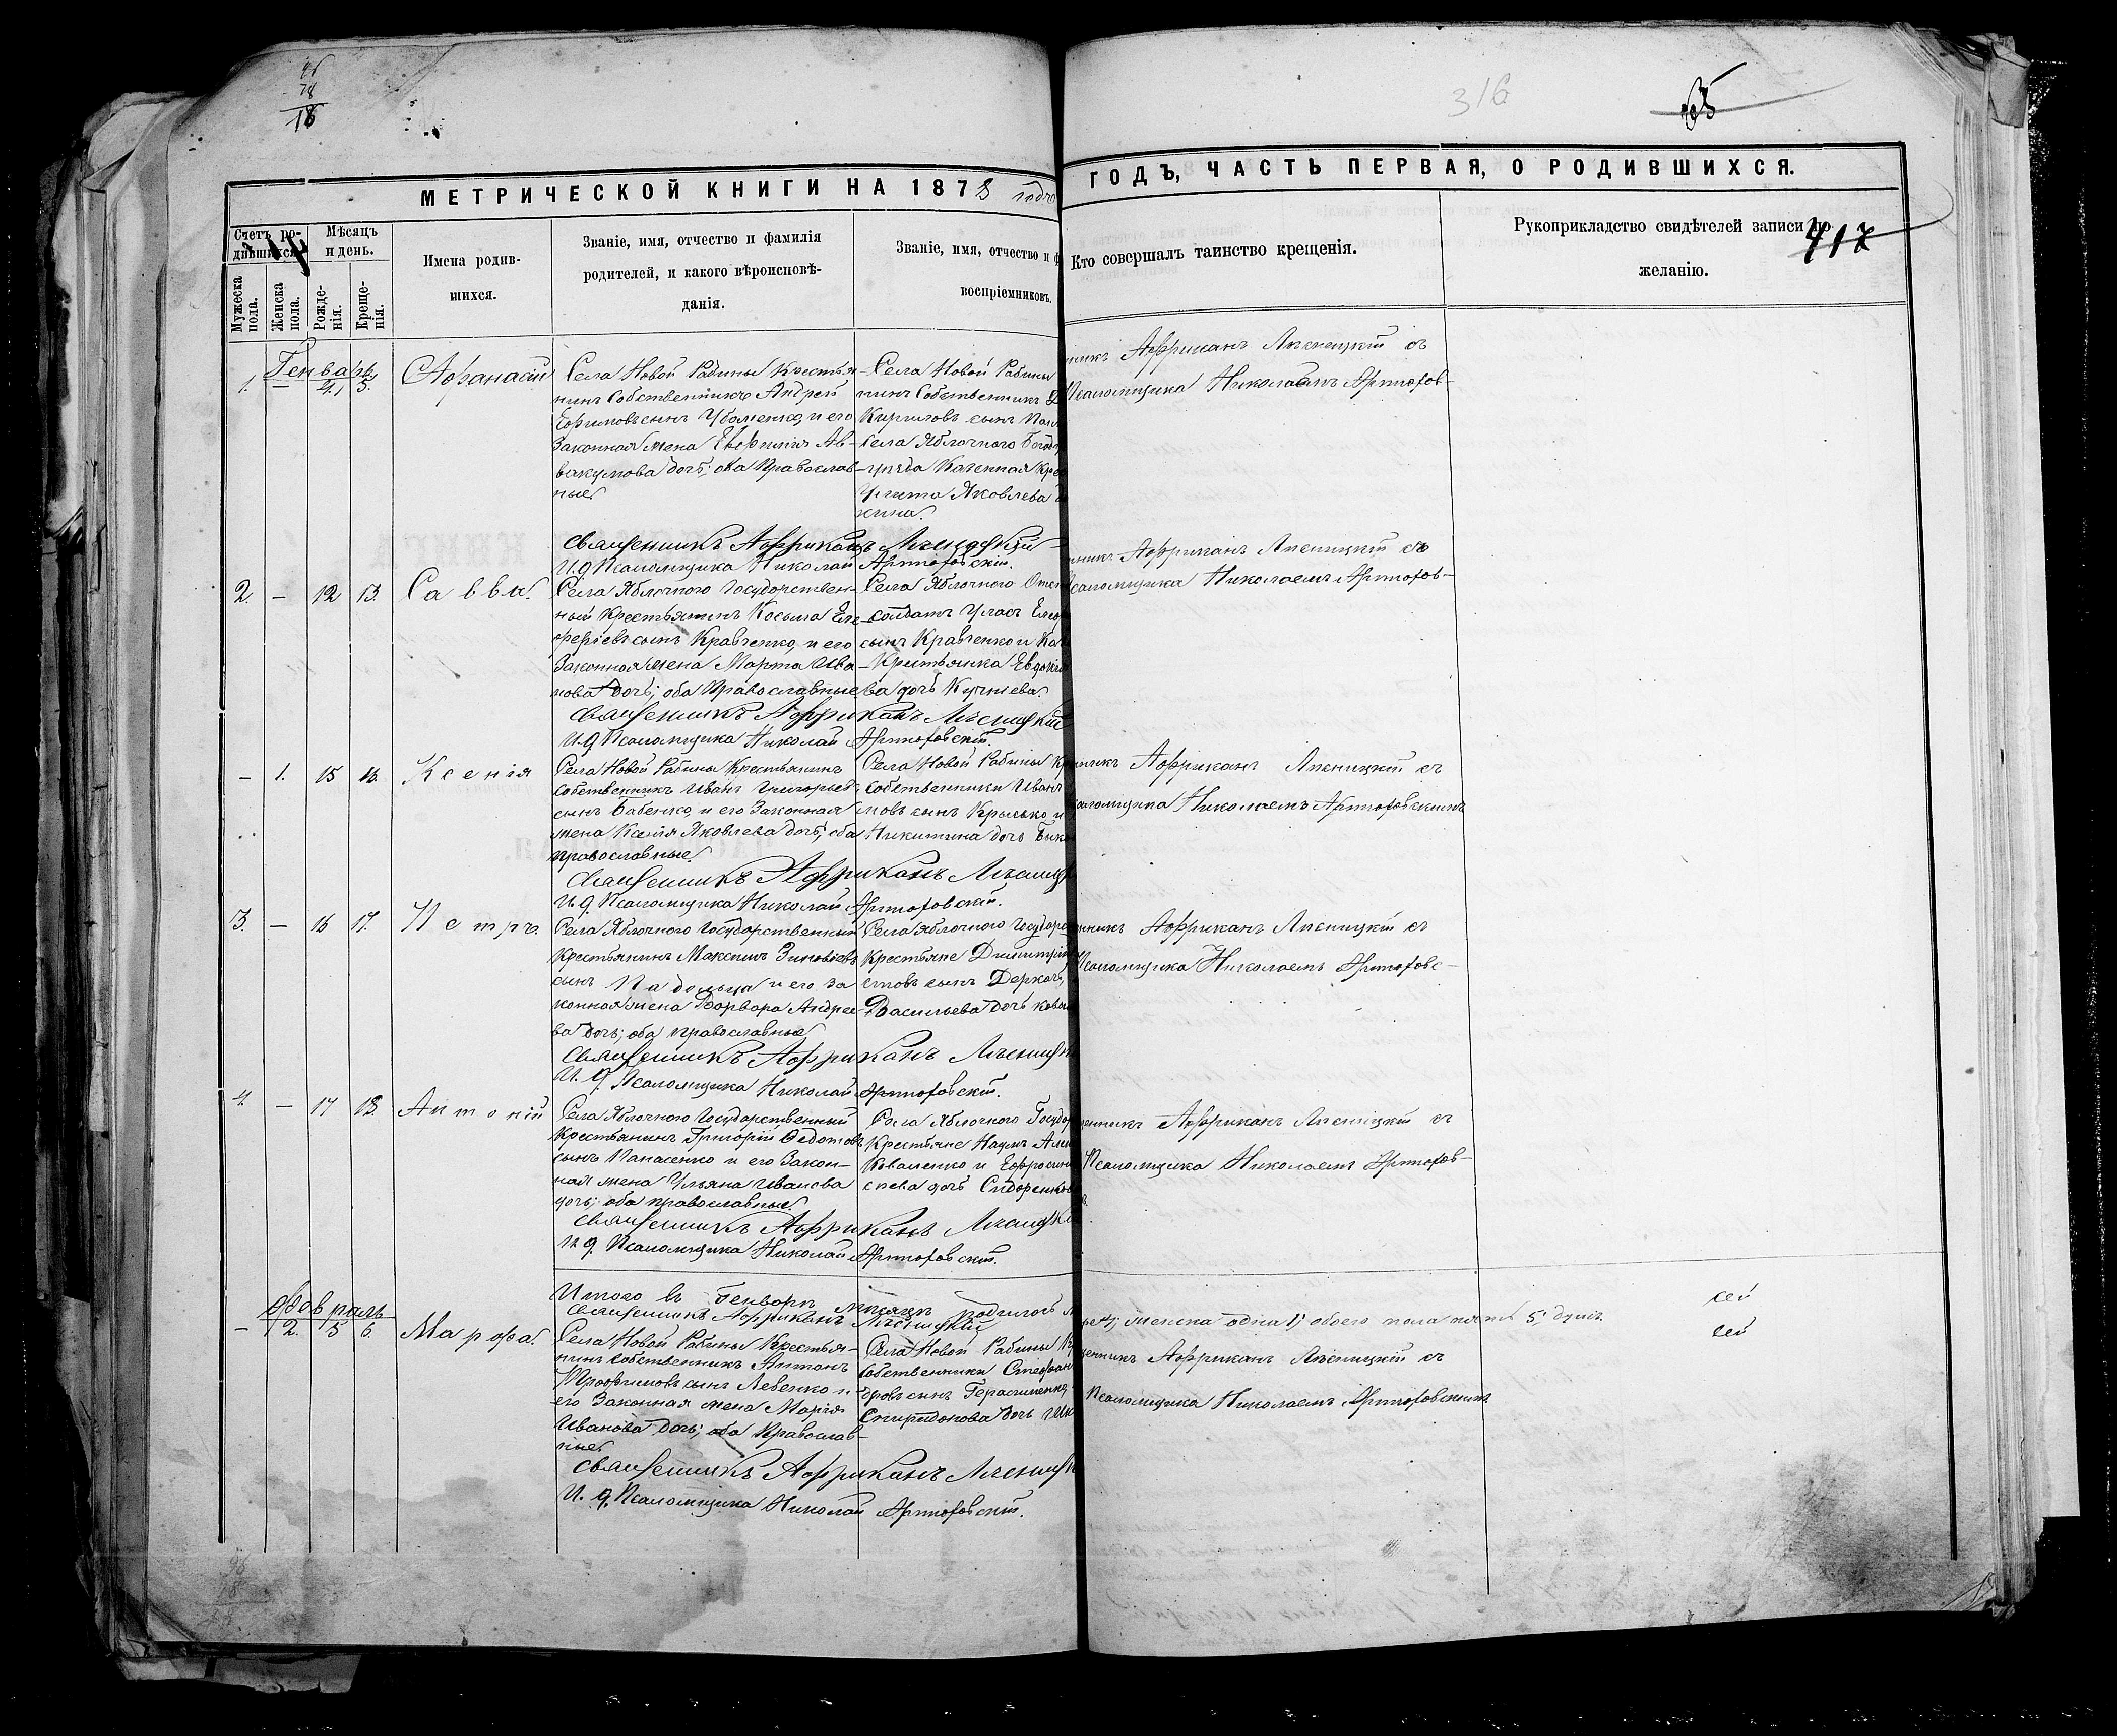 96
78
18
316
МЕТРИЧЕСКОЙ КНИГИ НА 1878 годъ
ГОДЪ, ЧАСТЬ ПЕРВАЯ, О РОДИВШИХСЯ.
Счетъ ро-
дившихся.
Мѣсяцъ
и день.
Мужеска
пола.
Женска
пола.
Рожде-
нія.
Креще-
нія.
Имена родив-
шихся.
Званіе, имя, отчество и фамилія
родителей, и какого вѣроисповѣ-
данія.
Званіе, имя, отчество и ф
воспріемниковъ.
Кто совершалъ таинство крещенія.
Рукоприкладство свидѣтелей записи по
желанію.
417
Генварь
1. — 4. 5. Афанасій
Села Новой Рабины Крестья-
нинъ Собственникъ Андрей
Ефимовъ сынъ Убоженко, и его
Законная жена Евфимія Ав-
вакумова дочь; оба Православ-
ные
Села Новой Рабины
нинъ Собственникъ
Кириловъ сынъ
Села Яблочного Богод
уѣзда Казенная Кре
Улита Яковлева
никъ Африканъ Лѣсницкій съ
Псаломщика Николаемъ Артюхов-
Священникъ Африканъ Лѣсницкій
И. д. Псаломщика Николай Артюховскій.
2. — 12 13. Савва.
Села Яблочного Государствен-
ный Крестьянинъ Косьма Еле-
ферієвъ сынъ Кравченко, и его
Законная жена Марта Ива
нова дочь; оба Православные
Села Яблочного Отст
солдатъ Уласъ
сынъ Кравченко и Каз
Крестьянка Евдокія
ва дочь
никъ Африканъ Лѣсницкій съ
Псаломщика Николаемъ Артюхов-
Священникъ Африканъ Лѣсницкій
И. д. Псаломщика Николай Артюховскій.
— 1. 15 16. Ксенія
Села Новой Рабины Крестьянинъ
Собственникъ Иванъ Григорьевъ
сынъ Бабенко, и его Законная
жена Ксенія Яковлева дочь; оба
православные.
Села Новой Рабины Кр
Собственники Иванъ
мовъ сынъ Крысько и
Никитина дочь Бык
никъ Африканъ Лѣсницкій съ
Псаломщика Николаемъ Артюховскимъ
Священникъ Африканъ Лѣсницк
И. д. Псаломщика Николай Артюховскій.
3. — 16 17. Петръ.
Села Яблочного Государственный
Крестьянинъ Максимъ Зиновіевъ
сынъ и его за
конная жена Варвара Андрее
ва дочь; оба православные
Села Яблочного Государ
Крестьяне Димитрій
стовъ сынъ Деркачъ,
Васильева дочь Кова
нникъ Африканъ Лѣсницкій съ
Псаломщика Николаемъ Артюховс-
Священникъ Африканъ Лѣсницк
И. д. Псаломщика Николай Артюховскій.
4. — 17 18. Антоній
Села Яблочного Государственный
Крестьянинъ Григорій Федотовъ
сынъ Панасенко и его Закон-
ная жена Ульяна Иванова
дочь; оба православные.
Села Яблочного Государ
Крестьяне Наумъ
Коваленко и Ефросин
дочь Сидоренков
енникъ Африканъ Лѣсницкій съ
Псаломщика Николаемъ Артюхов-
Священникъ Африканъ Лѣсницкі
И. д. Псаломщика Николай Артюховскій.
Итого въ Генварѣ мѣсяцѣ родилось м
ре 4; женска одна 1; обоего пола пять 5; душъ.
Священникъ Африканъ Лѣсницкій
Февраль
— 2. 5 6. Марфа.
Села Новой Рабины Крестья-
нинъ Собственникъ Антонъ
Трофимовъ сынъ Левенко и
его Законная жена Марія
Иванова дочь; оба Православ-
ные.
Села Новой Рабины
Собственники Стефан
сынъ Герасименко
Спиридонова дочь
енникъ Африканъ Лѣсницкій съ
Псаломщика Николаемъ Артюховскимъ.
Священникъ Африканъ Лѣсницк
И. д. Псаломщика Николай Артюховскій.